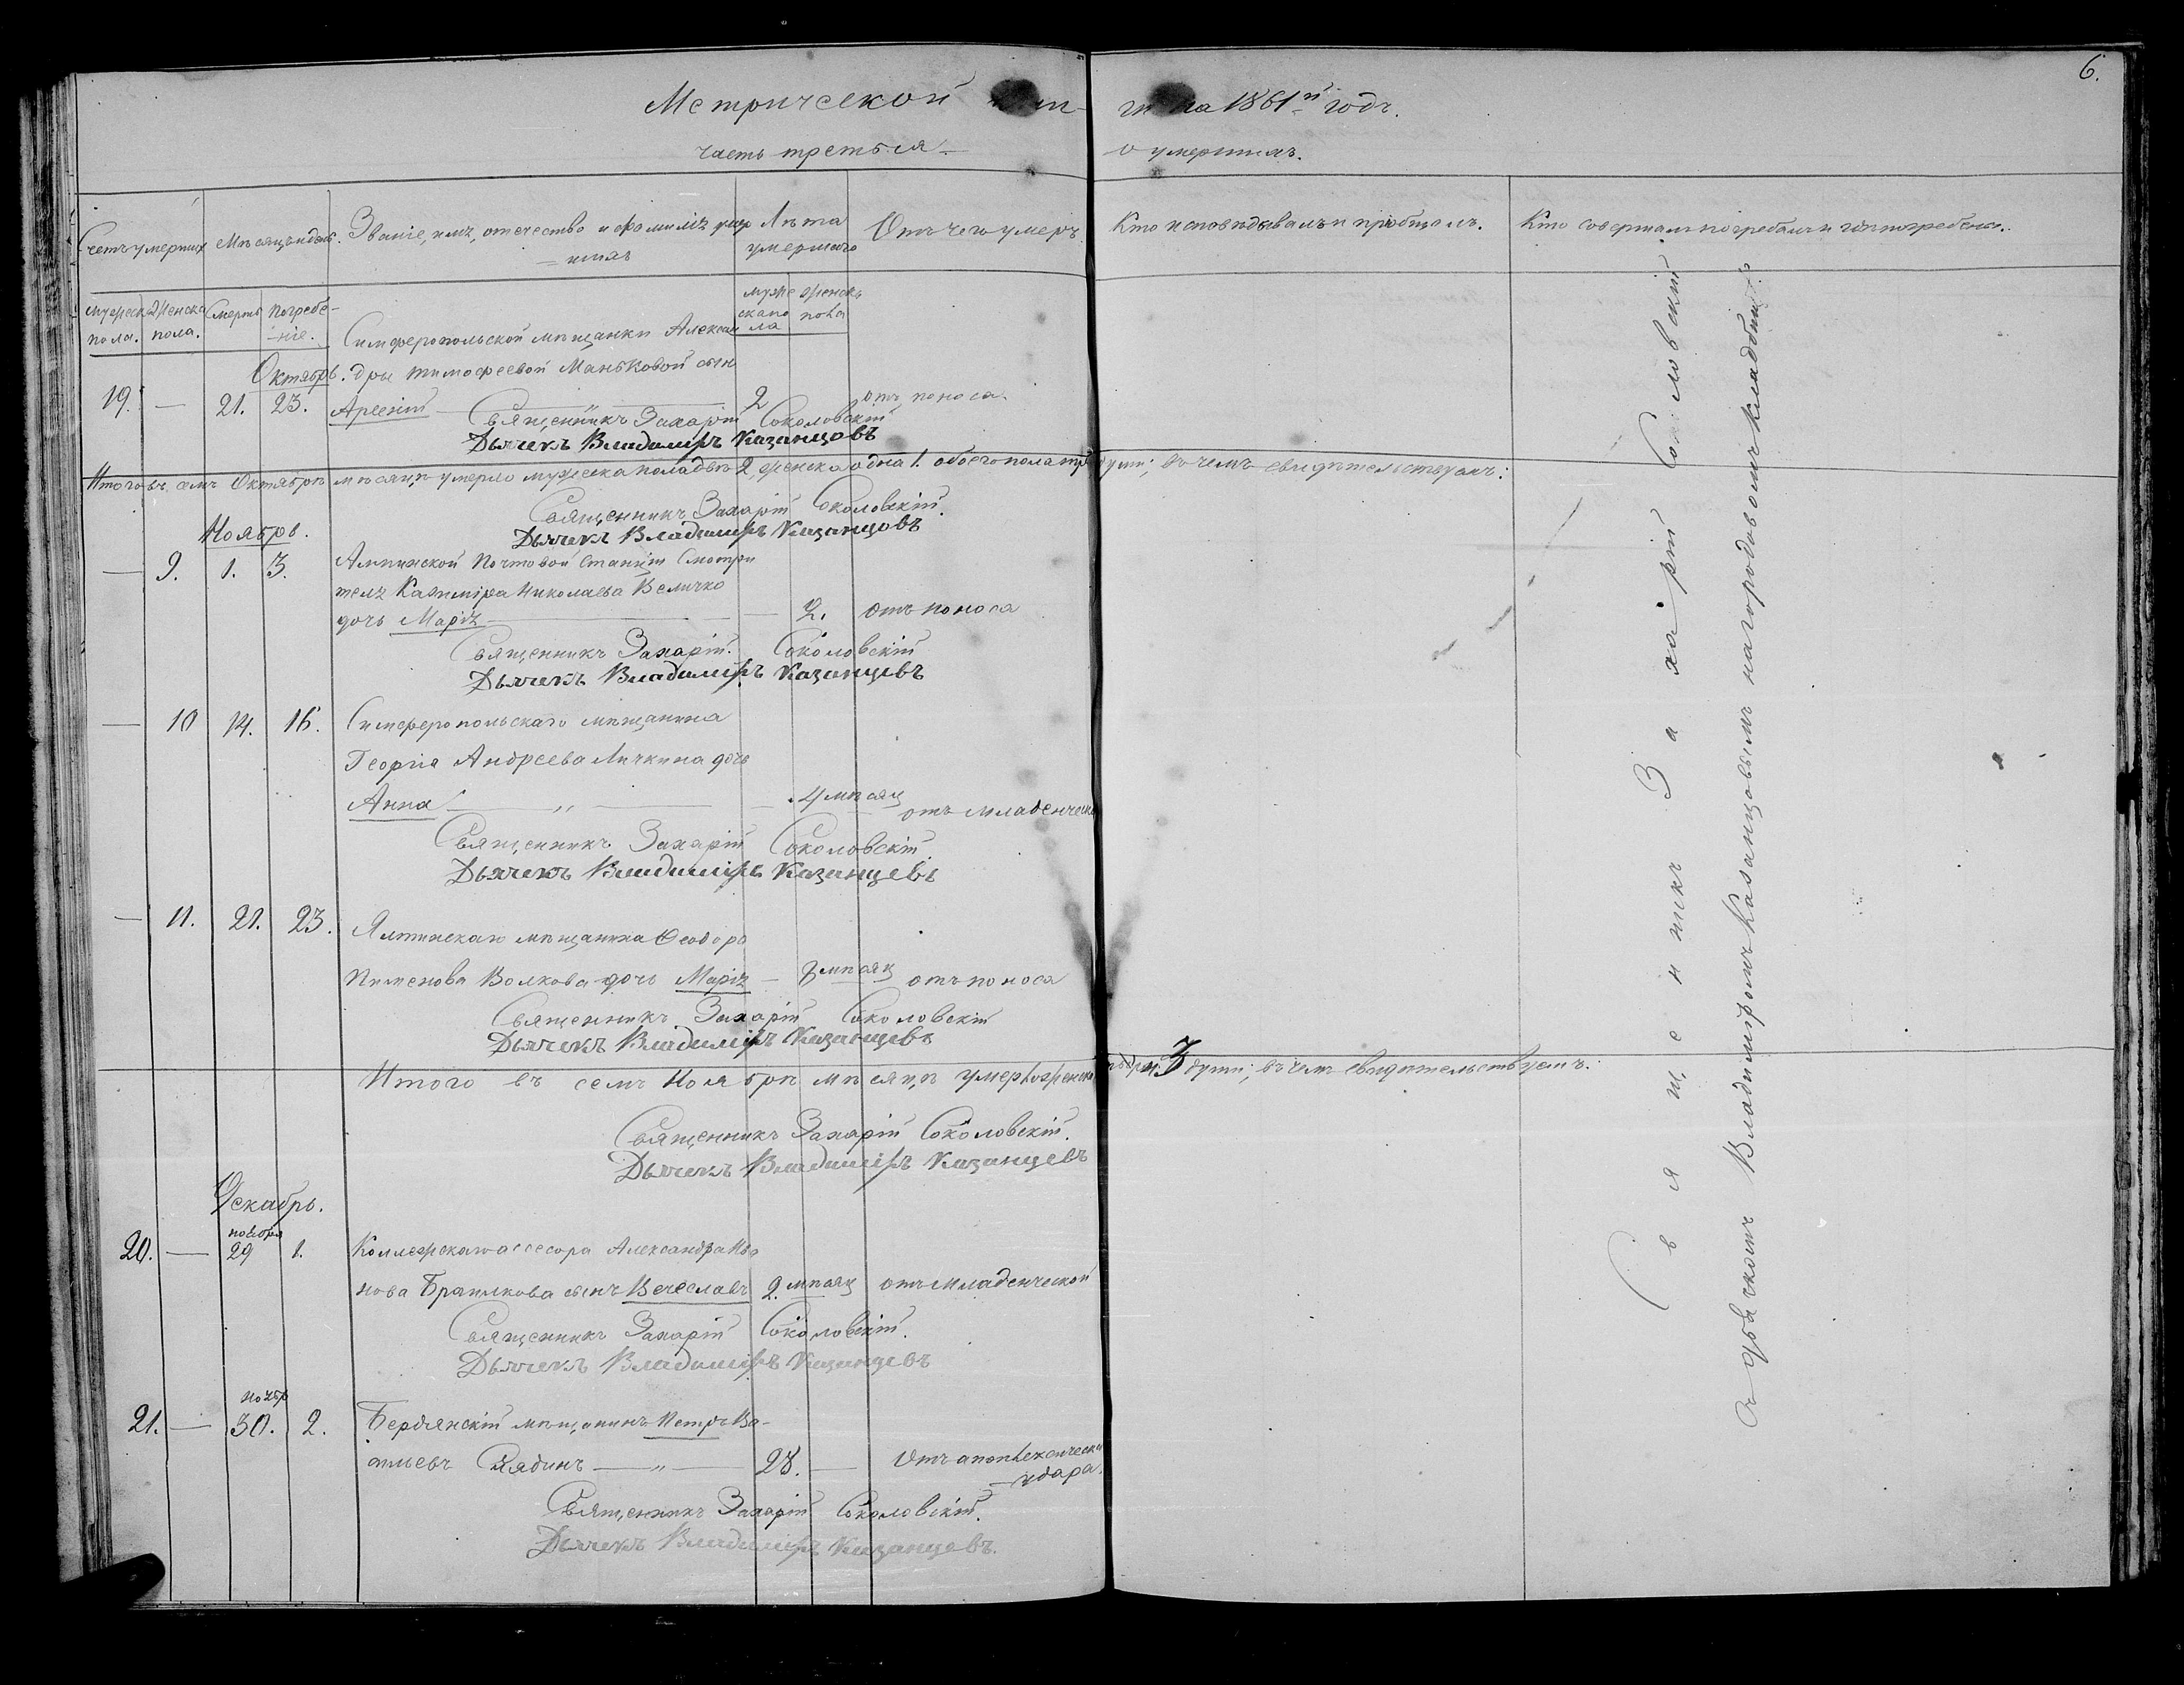 6.
Метрической кни-
ги на 1861й годъ.
часть третья
о умершихъ.
Счетъ умершихъ
Мѣсяцъ и день.
Званіе, имя, отечество и фамилія умер
шихъ
Лѣта
умершаго
Отъ чего умеръ
Кто исповѣдывалъ и пріобщалъ.
Кто совершалъ погребалъ и гдѣ погребены.
мужеск
пола.
Женска
пола.
Смерть
Погребе-
ніе.
муже
ска по
ла
женск
пола
Симферопольской мѣщанки Алексан
Октябрь. дры Тимофеевой Маньковой сын
19. — 21. 23. Арсеній — „ — 2 отъ поноса.
Священникъ Захарій Соколовскій
Дьячекъ Владиміръ Казанцовъ
Итого въ семъ Октябрѣ мѣсяцѣ умерло мужеска пола два 2, женска одна 1. обоего пола три души; въ чемъ свидѣтельствуемъ:
Священникъ Захарій Соколовскій.
Дьячекъ Владиміръ Казанцовъ
Ноябрь.
— 9. 1. 3. Алминской Почтовой Станціи Смотри
теля Казиміра Николаева Величко
дочь Марія — 2. отъ поноса
Священникъ Захарій. Соколовскій
Дьячекъ Владиміръ Казанцевъ
— 10 14. 16. Симферопольскаго мѣщанина
Георгія Андреева Личкина дочь
Анна — „ — 4 мѣсяц отъ младенческ
Священникъ Захарій Соколовскій
Дьячекъ Владиміръ Казанцевъ
— 11. 21. 23. Ялтинскаго мѣщанина Феодора
Пименова Волкова дочь Марія — 8 мѣсяц отъ поноса
Священникъ Захарій Соколовскій
Дьячекъ Владиміръ Казанцевъ
Итого въ семъ Ноябрѣ мѣсяцѣ умерло женска 3 души; въ чемъ свидѣтельствуемъ:
Священникъ Захарій Соколовскій.
Дьячекъ Владиміръ Казанцевъ
Декабрь.
ноября
20. — 29 1. Коллежскаго ассесора Александра Ива
нова сынъ Вечеславъ 2. мѣсяц отъ младенческой
Священникъ Захарій Соколовскій.
Дьячекъ Владиміръ Казанцевъ
ноябр
21. — 30. 2. Бердянскій мѣщанинъ Петръ
28. — Отъ апоплексическ
удара.
Священникъ Захарій Соколовскій.
Дьячекъ Владиміръ Казанцевъ.
Священникъ Захарій Соколовскій
съ дьячкомъ Владиміромъ Казанцовымъ на городовомъ кладбищѣ.